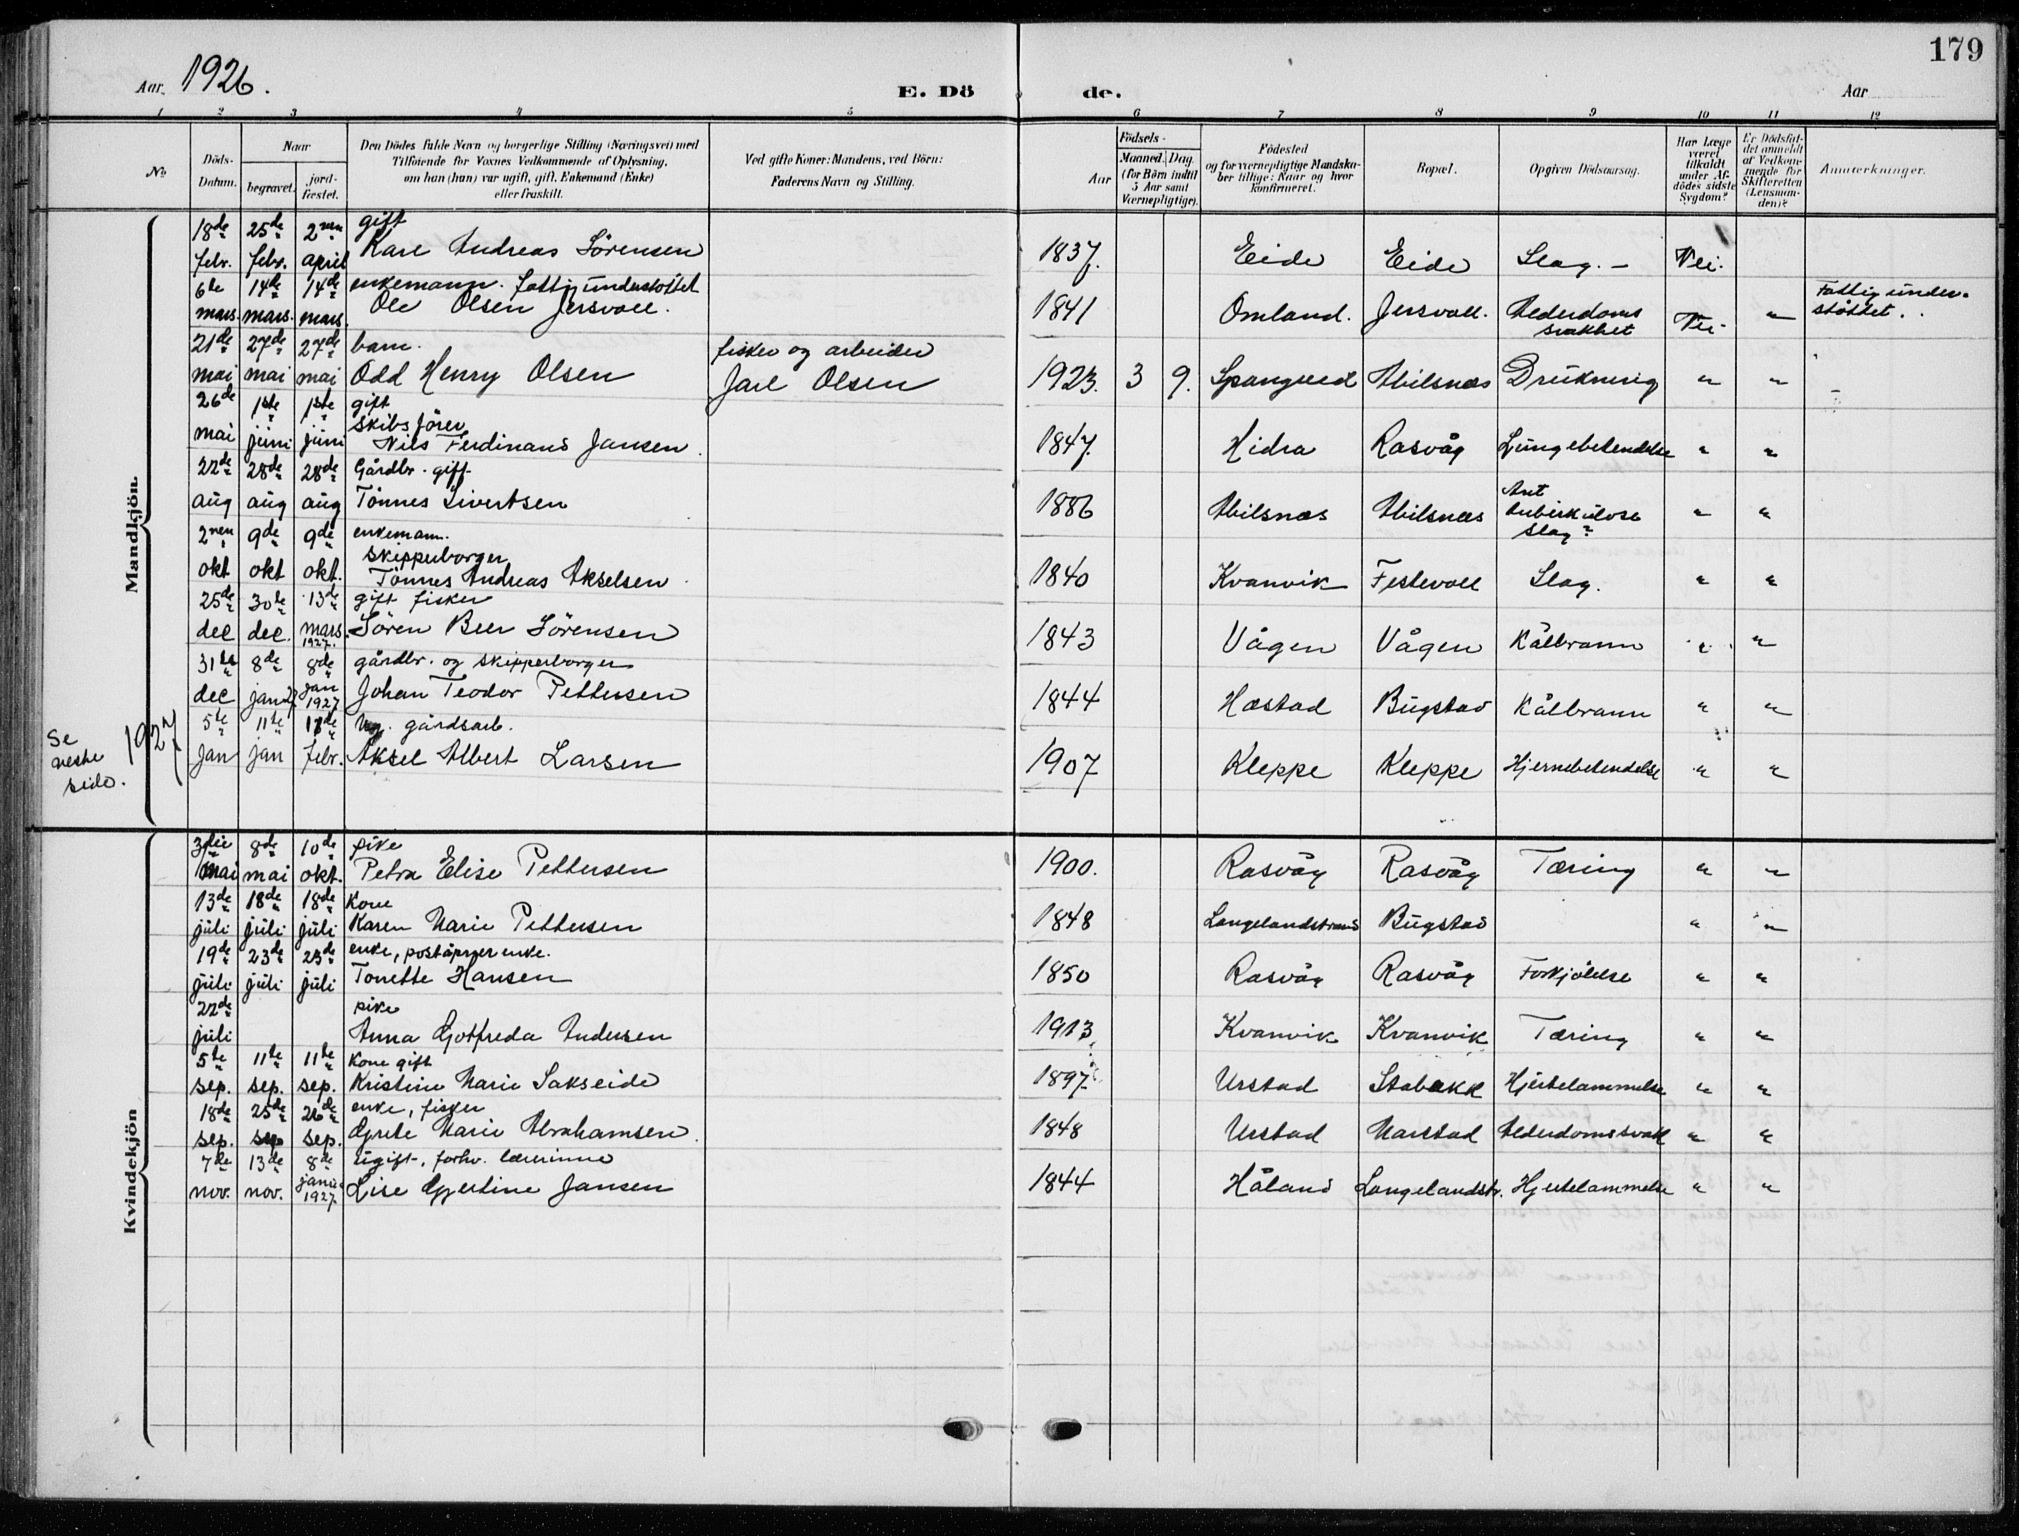 179
Aar 1926.
E. Dö de.
Aar
1 2 3 4 5 6 7 8 9 10 11 12
No
Döds-Datum.
Naar
begravet.
jord-fæstet.
Den Dödes fulde Navn og borgerlige Stilling (Næringsvei) med
Tilföiende for Voxnes Vedkommende af Oplysning,
om han (hun) var ugift, gift, Enkemand (Enke)
eller fraskilt.
Ved gifte Koner: Mandens, ved Börn:
Faderens Navn og Stilling.
Födsels-
Aar
Maaned. Dag.
(for Börn indtil
5 Aar samt
Værnepligtige).
Födested
og for værnepligtige Mandska-
ber tillige: Naar og hvor
konfirmeret.
Bopæl.
Opgiven Dödsaarsag.
Har Læge
været
tilkaldt
under Af-
dödes sidste
Sygdom?
Er Dödsfal-
det anmeldt
af Vedkom-
mende for
Skifteretten
(Lensman-
den)?
Anmærkninger.
Mandkjön.
18de 25de 2nen gift
febr. febr. april Karl Andreas Sörensen 1837. Eide Eide Slag. – Nei.
6te 14de 14de enkemann. fattigunderstöttet
mars. mars. mars. Ole Olsen Jersvoll. 1841 Omland. Jersvoll. Alderdoms svakhet Nei. " Fattigunder-
støttet.
21de 27de 27de barn. fisker og arbeider
mai mai mai Odd Henry Olsen Jarl Olsen 1923. 3 9. Spangved Abilsnæs Drukning " "
26de 1ste 1ste gift
skibsförer
mai juni juni Nils Ferdinand Jansen. 1847. Hidra Rasvåg Lungebetendelse " "
22de 28de 28de Gårdbr. gift
aug aug aug Tönnes Sivertsen 1886 Abilsnæs Abilsnæs Ant tuberkulose slag? " "
2nen 9de 9de enkemann.
skipperborger
okt okt okt. Tönnes Andreas Akselsen 1840 Kvanvik Festevoll Slag. " "
25de 30te 13de gift fisker
dec dec. mars. 1927. Sören Beer Sörensen 1843 Vågen Vågen Kålbrann " "
31te 8de 8de gårdbr. og skipperborger
dec jan 27 jan 1927 Johan Teodor Pettersen 1844 Hæstad Bugstad Kålbrann " "
1927
5te 11te 17de Ug. gårdsarb.
Jan jan febr. Aksel Albert Larsen 1907 Kleppe Kleppe Hjernebetendelse " "
Se
neste
side.
Kvindekjön
3die 8de 10de pike
mai mai okt. Petra Elise Pettersen 1900. Rasvåg Rasvåg Tæring " "
13de 18de 18de kone
juli juli juli Karen Marie Pettersen 1848 Langelandstrand Bugstad " "
19de 23de 23de enke, poståpnerenke.
juli juli juli Tonette Hansen 1850 Rasvåg Rasvåg Forkjölelse " "
22de pike
juli Anna Gotfreda Andersen 1913 Kvanvik Kvanvik Tæring " "
5te 11te 11te kone gift
sep. sep. sep. Kristine Marie Sakseide 1897 Urstad Stabækk Hjertelammelse " "
18de 25de 26de enke, fisker
sep. sep sep. Grete Marie Abrahamsen. 1848 Urstad Harstad Alderdomssvakh " "
7de 13de 8de ugift, forhv. lærerinne
nov. nov. januar 1927. Lise Gjertine Jansen 1844 Håland Langelandstr. Hjertelammelse " "